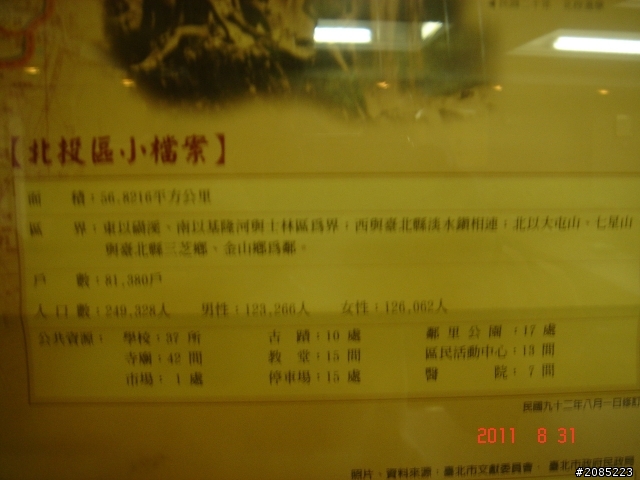 【北投區小檔案】
面 積：56.8216平方公里
區 界：東以磺溪、南以基隆河與士林區為界；西與臺北縣淡水鎮相連；北以大屯山、七星山
與臺北縣三芝鄉、金山鄉為鄰。
戶 數：81,380戶
人 口 數：249,328人 男性：123,266人 女性：126,062人
公共資源： 學校：37 所 古 蹟：10 處 鄰 里 公 園：17 處
寺廟：42 間 教 堂：15 間 區民活動中心：13 間
市場： 1 處 停車場：15 處 醫 院： 7 間
民國九十二年八月一日修訂
2011 8 31
照片、資料來源：臺北市文獻委員會、臺北市政府民政局
#2085223